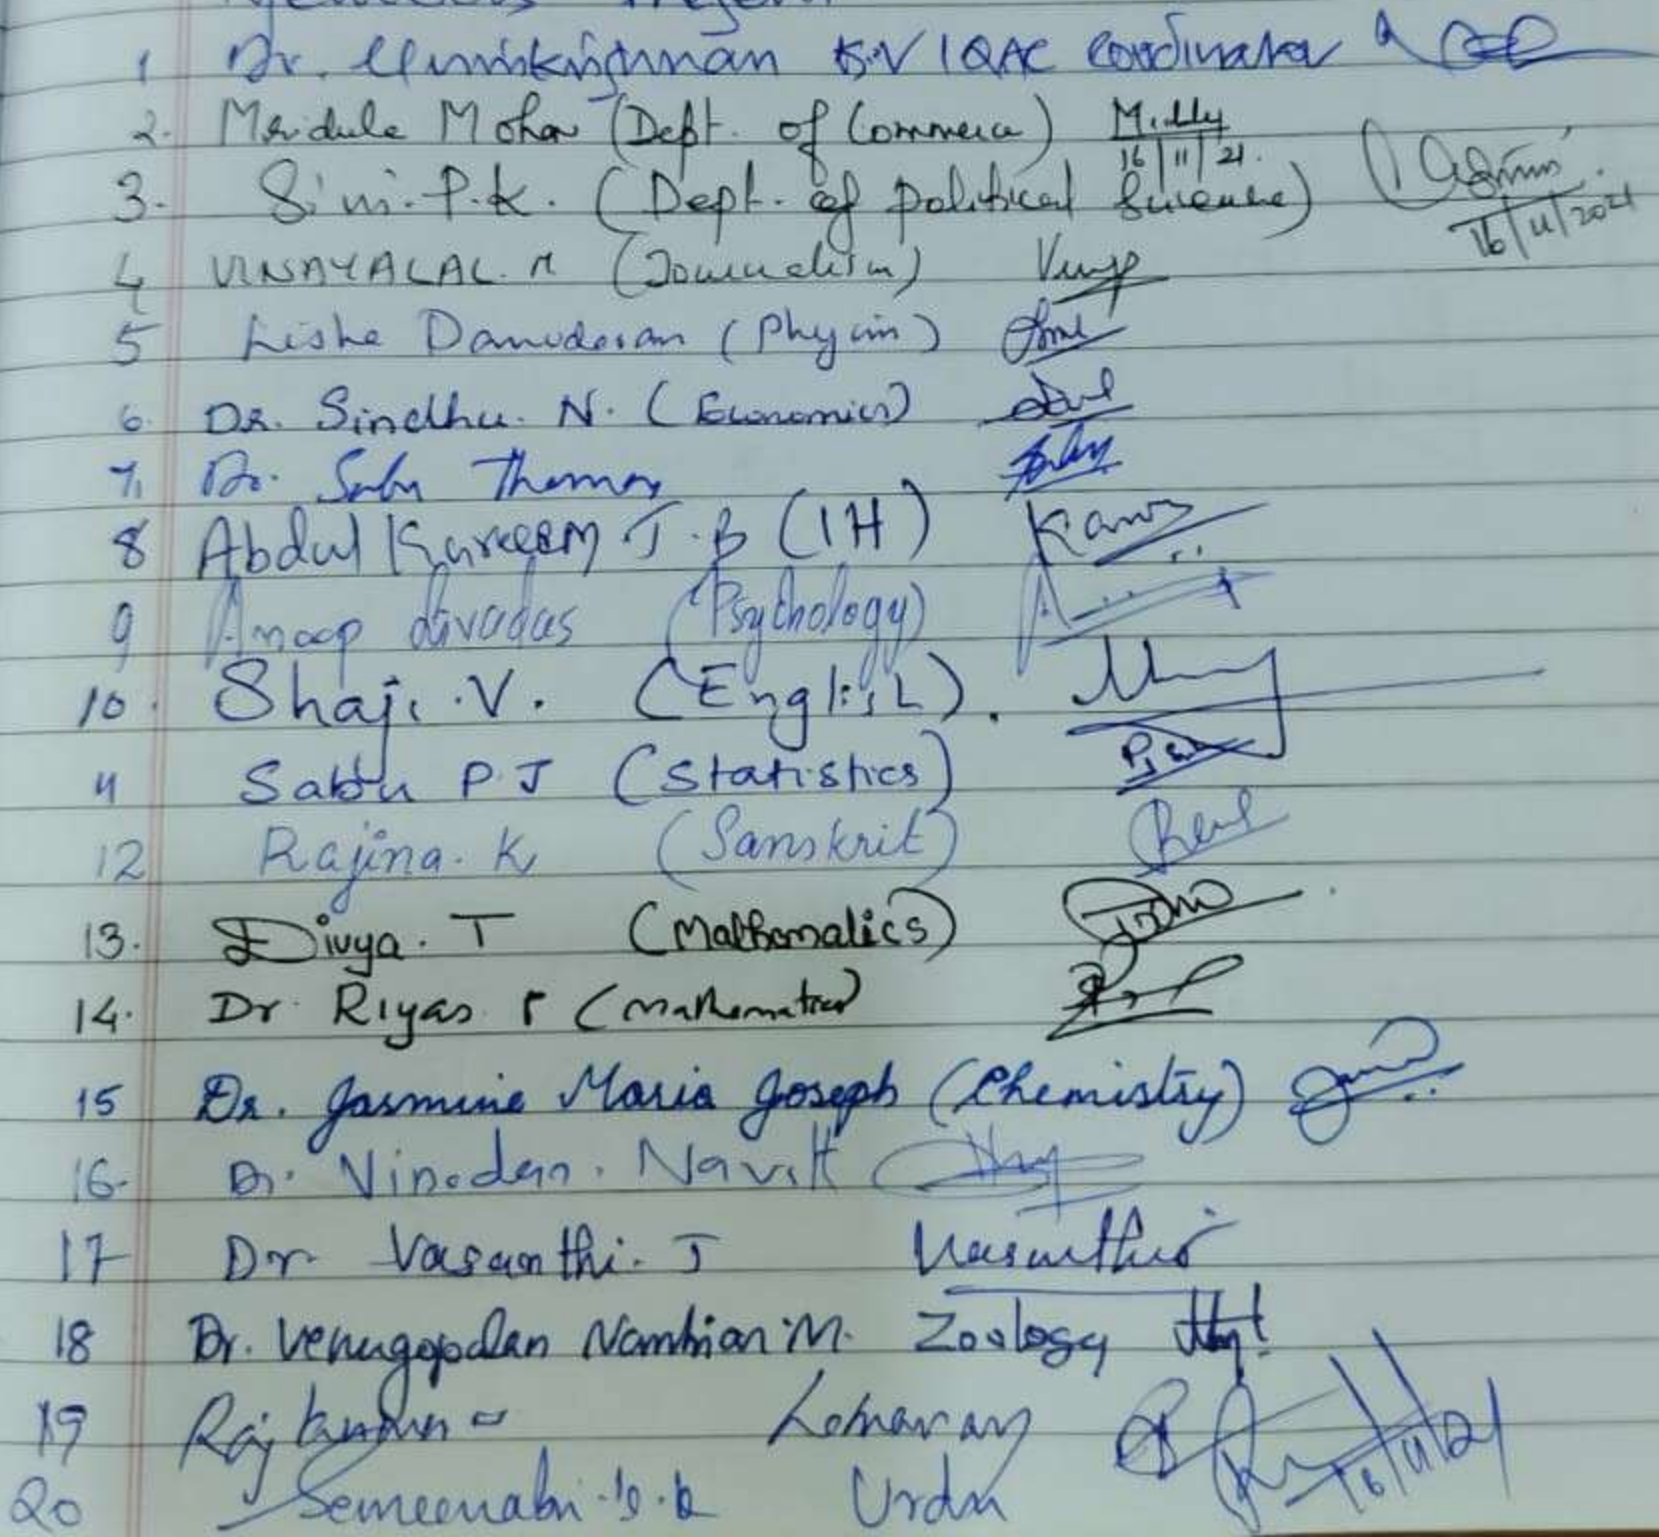 Members Present
1 Dr. Unnikrishnan K.V IQAC Coordinator
2. Mridula Mohan (Dept. of Commerce)
16/11/21.
3. Sini. P.K. (Dept. of Political Science)
16/11/2021
4 VINAYALAL. M (Journalism)
5 Lisha Damodaran (Physics)
6. DR. Sindhu. N. (Economics)
7. Dr. Sabu Thomas
8 Abdul Kareem T.B (IH)
9 Anoop devadas (Psychology)
10. Shaji. V. (English).
11 Sabu P.J (Statistics)
12 Rajina. K (Sanskrit)
13. Divya. T (Mathematics)
14. Dr Riyas P (Mathematics)
15 Dr. Jasmine Maria Joseph (Chemistry)
16. Dr. Vinodan. Navath
17 Dr. Vasanthi. J Vasanthi
18 Dr. Venugopalan Nambiar. M. Zoology
19 Raj
20 Urdu 16/11/21